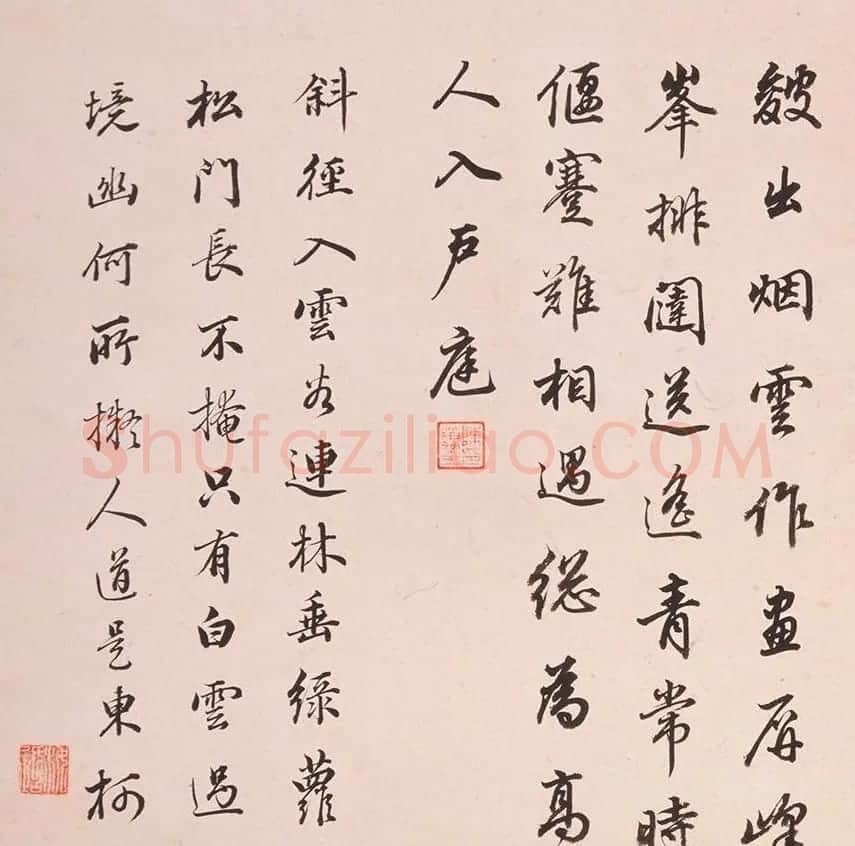 皴出烟雲作畫屏峰
峯排闥送遙青常時
偃蹇難相遇総為高
人入戶庭
斜徑入雲谷連林垂綠蘿
松門長不掩只有白雲過
境幽何所擬人道是東柯
Shufaziliao.COM